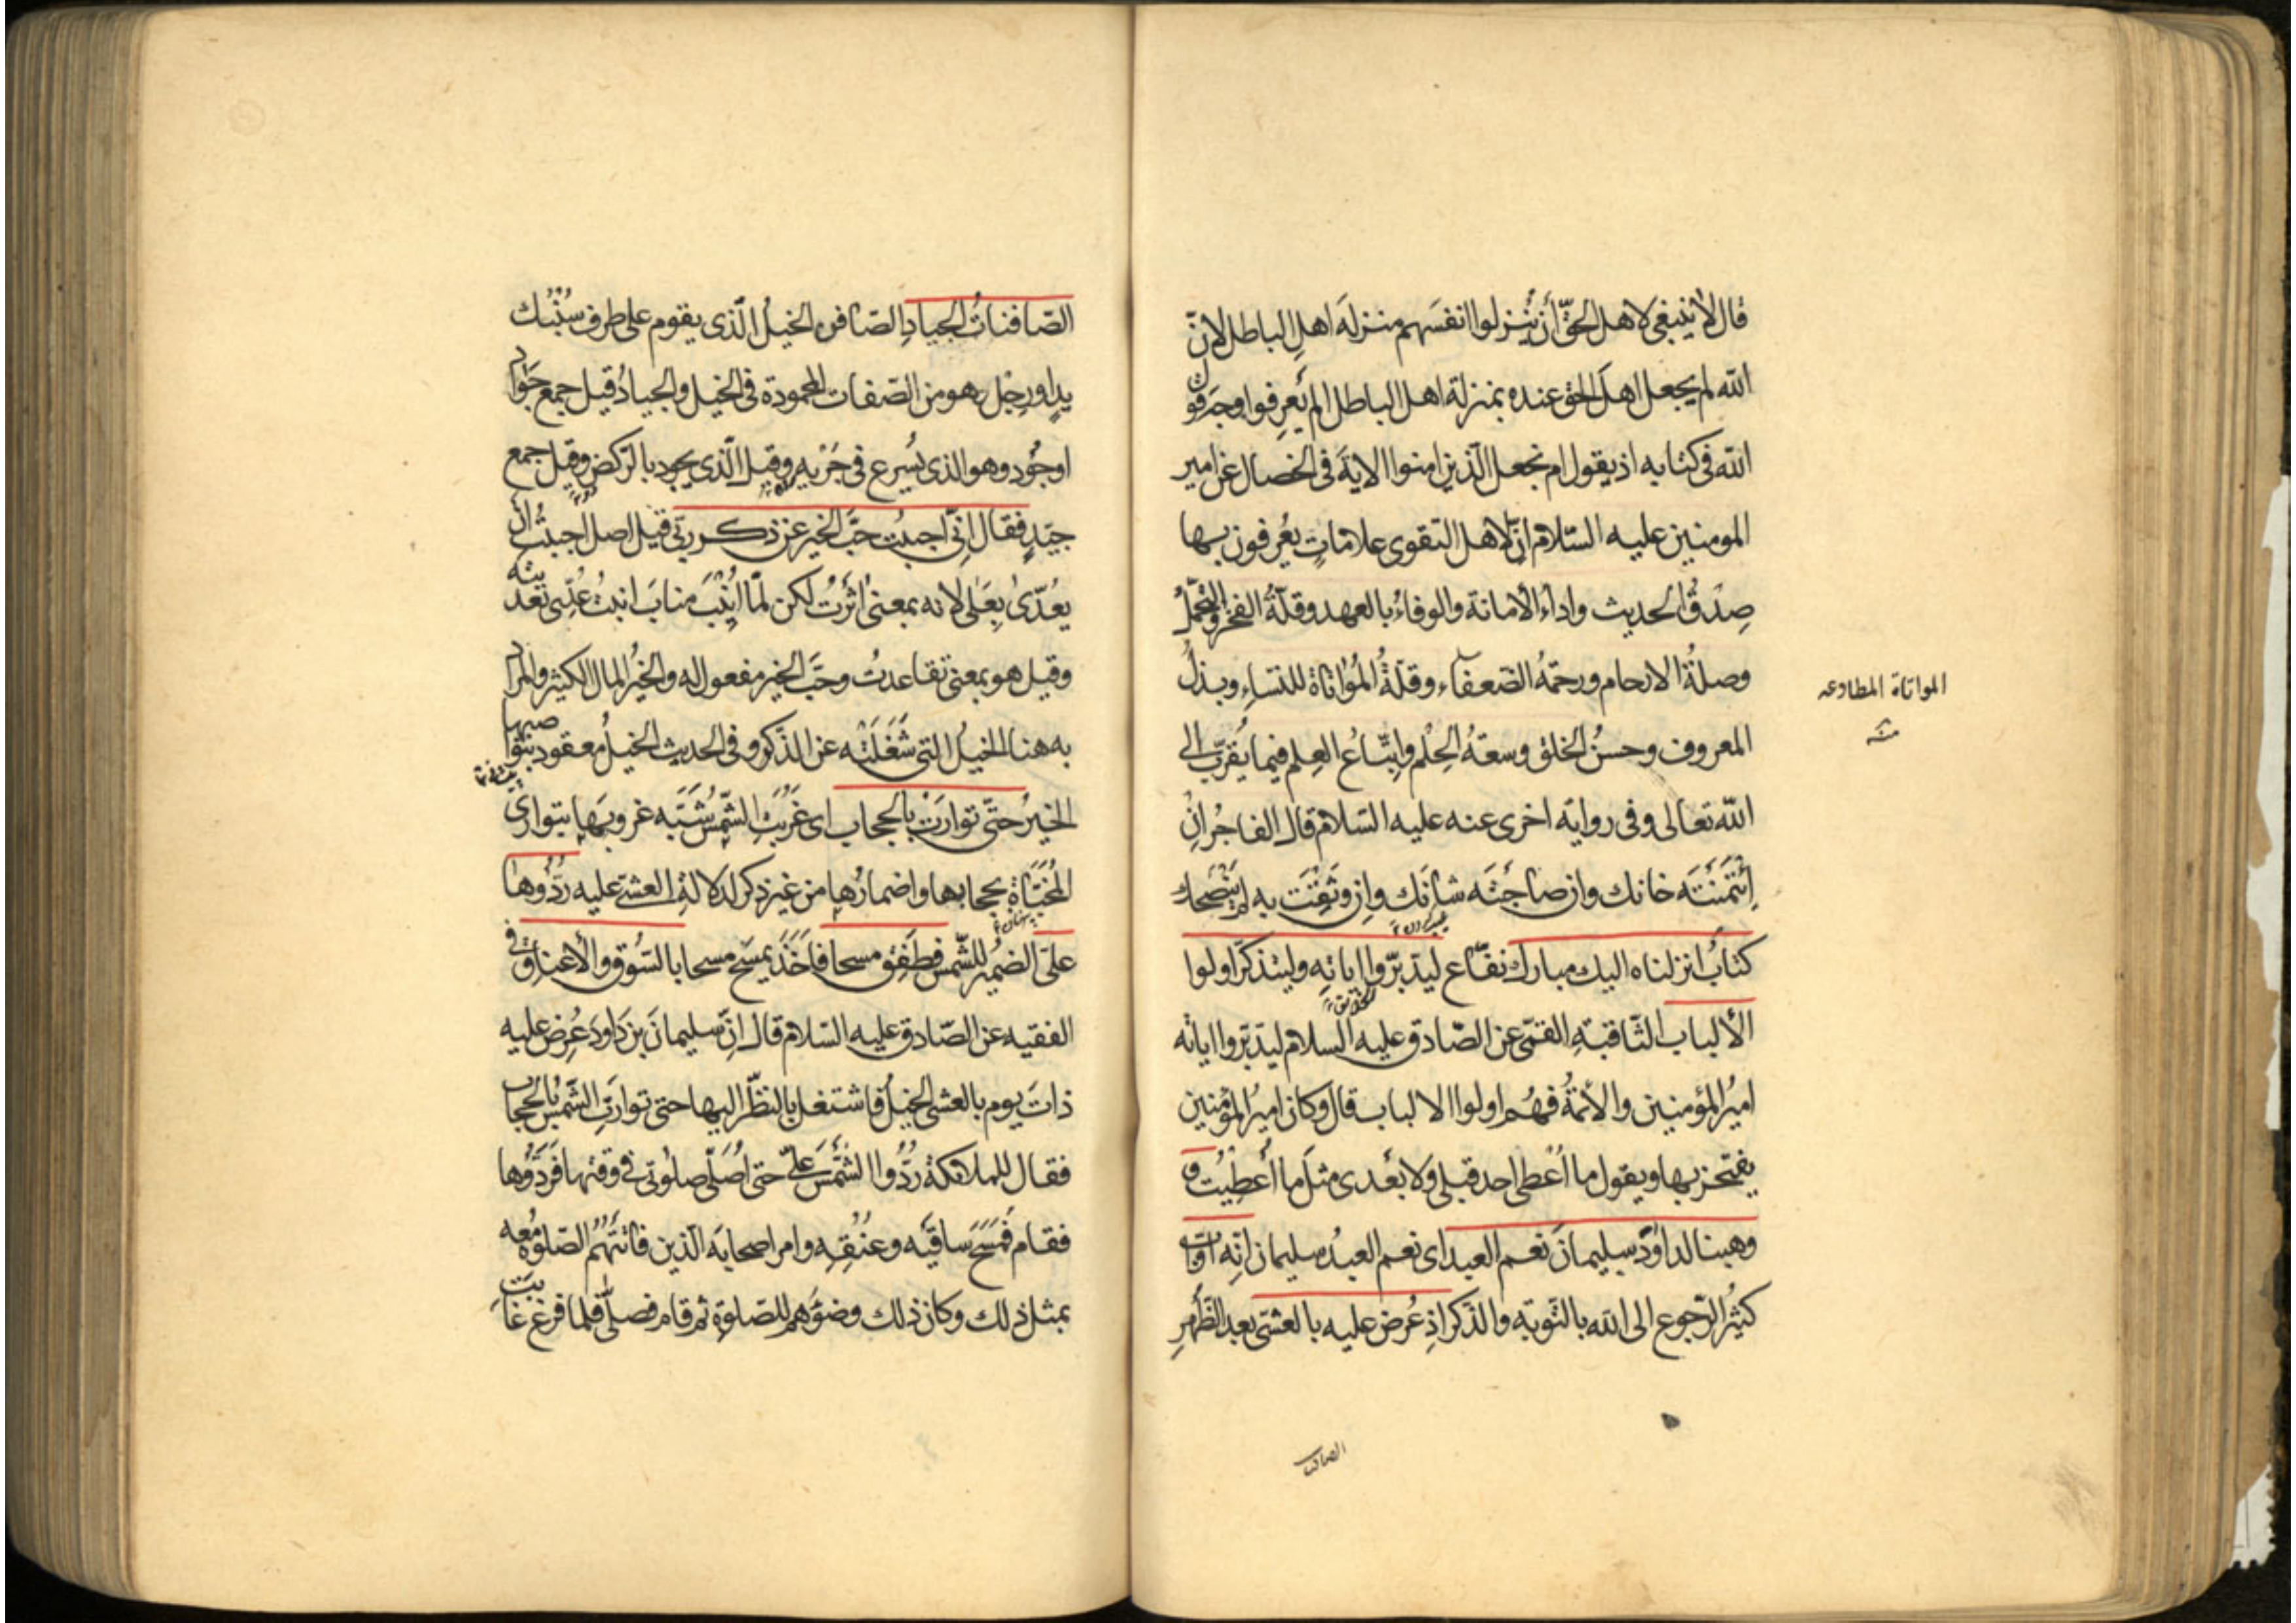 قال لا ينبغي لاهل الحقّ أن يُنزلوا انفسَهم منزلةَ اهلِ الباطل لانّ
الله لم يجعل اهلَ الحق عنده بمنزلة اهل الباطل الم يَعرِفوا وجه قول
الله فى كتابه اذ يقول ام نجعل الّذين امنوا الايةَ فى الخصال عن امير
المومنين عليه السّلام انّ لاهل التقوى علاماتٍ يُعرفون بها
صِدقُ الحديث واداءُ الأمانة والوفاءُ بالعهد وقلّةُ الفخر والتجمّلُ
وصلةُ الارحام ورحمةُ الضّعفاء وقلّةُ المُؤاتاة للنّساءِ وبذلُ
المواتاة المطاوعه
المعروف وحسنُ الخلق وسعةُ الحِلْم واتّباعُ العِلم فيما يُقرّب الى
الله تعالى وفى رواية اخرى عنه عليه السّلام قال الفاجرُ انِ
ائْتَمَنْتَه خانك وان صاحَبْتَه شانَك وان وَثِقْتَ به لم يَنْصَحك
كتابٌ انزلناه اليك مبارك نفّاع ليدبّروا اياتِه وليتذكّر اولوا
الألباب الثّاقبةِ القمّى عن الصّادق عليه السلام ليدبّروا اياته
اميرُ المؤمنين والأئمّةُ فهُم اولوا الالباب قال وكان اميرُ المؤمنين
يفتخر بها ويقول ما اُعْطى احد قبلى ولا بعدى مثلَ ما أُعطِيْتُ و
وهبنا لداوُدَ سليمانَ نعم العبد اى نعم العبدُ سليمان انّه اوّاب
كثيرُ الرّجوع الى الله بالتّوبةِ والذّكر اذ عُرض عليه بالعشىّ بعد الظّهرِ
الصافنات
الصّافناتُ الجيادِ الصّافن الخيلُ الّذى يقوم على طرف سُنْبُك
يدٍ او رِجْل وهو من الصّفات المحمودة فى الخيل والجيادُ قيل جمع جَواد
او جُود وهو الذى يُسرع فى جَرْيه وقيل الّذى يجود بالرّكض وقيل جمع
جيّدٍ فقال انّى احببْتُ حبَّ الخير عن ذكر ربّى قيل اصل احببتُ ان
يعُدّىٰ بِعَلى لانه بمعنى اٰثَرْتُ لكن لمّا اُنِيْبَ منابَ انبتُ عُدِّىَ تعديته
وقيل هو بمعنى تقاعدتُ وحبَّ الخير مفعول له والخيرُ المال الكثير والمراد
به هنا الخيلُ التى شَغَلَتْه عن الذّكر وفى الحديث الخيلُ معقود بنواصيها
الخيرُ حتّى توارَتْ بالحجاب اى غَرُبَتِ الشّمس شَبَّه غروبَها بتوارى
المُخَبَّأةِ بحجابها واضمارُها من غير ذكر لدلالةِ العشىّ عليه رُدُّوها
علىّ الضميرُ للشّمس فطَفِقَ مسحا فاَخَذَ يمسَح مسحا بالسُّوق والأعناق فى
الفقيه عن الصّادق عليه السّلام قال انّ سليمانَ بن دَاودَ عُرِض عليه
ذاتَ يوم بالعشى الخيلُ فاشتغل بالنظر اليها حتى توارتِ الشّمسُ بالحجاب
فقال للملائكة رُدُّوا الشّمسَ علىّ حتى اُصَلّىَ صلوتى فى وقتها فَرَدُّوها
فقام فَمَسَحَ ساقَيْه وعنُقِه وامر اصحابَه الّذين فاتتْهُم الصّلوةُ معه
بمثل ذلك وكان ذلك وضوءَهم للصّلوةِ ثم قام فصلّى فلما فرغ غابت